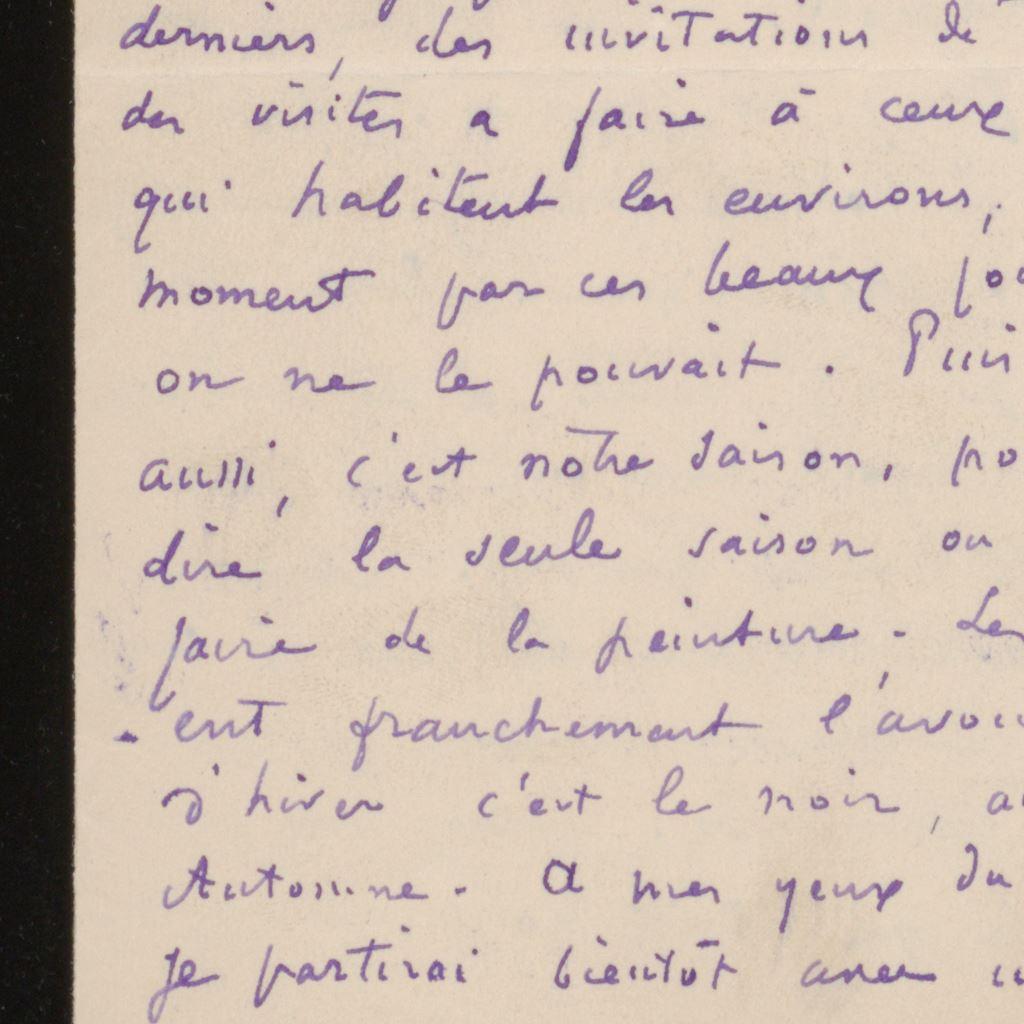 derniers, des invitations de
des visites a faire à ceux
qui habitent les environs,
moment par ces beaux jou
on ne le pouvait. Puis
aussi, c'est nôtre saison, po
dire la seule saison ou
faire de la peinture. Les
ent franchement l'avou
d'hiver c'est le noir, au
Automne. A mes yeux du
je partirai bientôt avec u